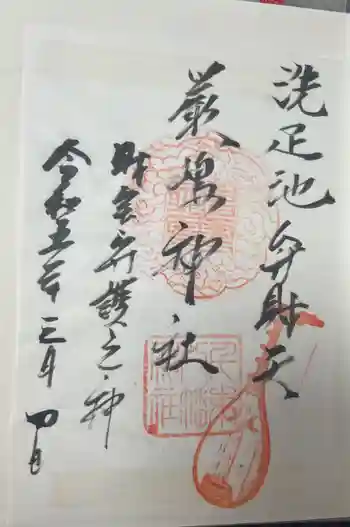 洗足池弁財天
厳島神社
財宝弁護之神
令和五年三月四日